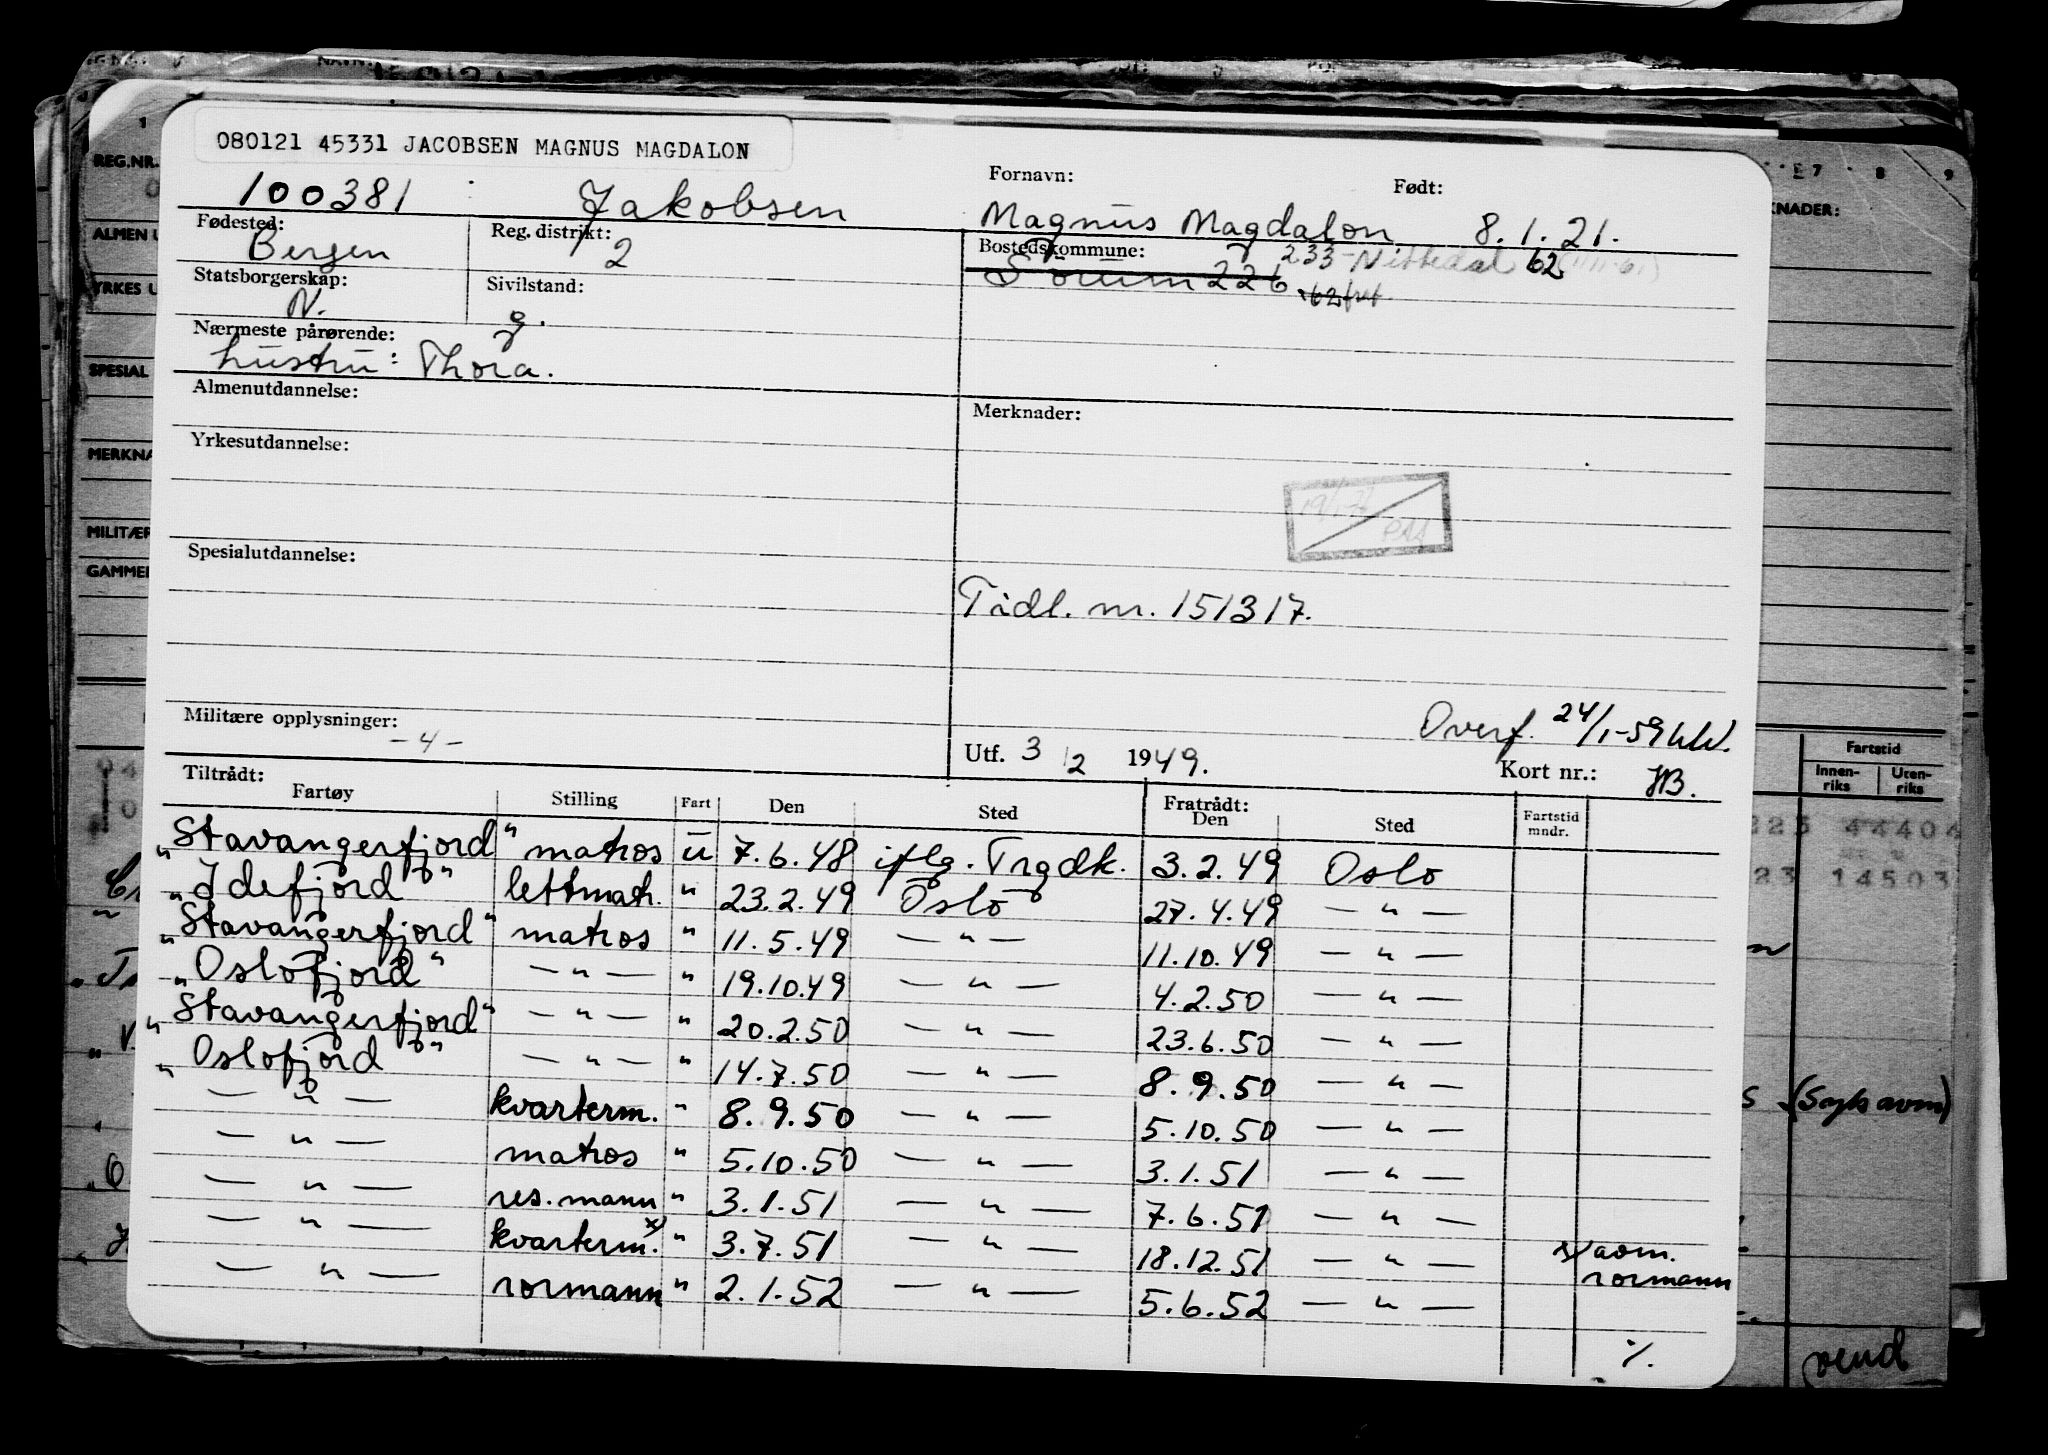 080121 45331 JACOBSEN MAGNUS MAGDALON
Fornavn: Født:
100381 Jakobsen Magnus Magdalon 8.1.21.
Fødested: Reg. distrikt: Bostedskommune:
Bergen 2 233-Nittedal 62
Sørum 226
Statsborgerskap: Sivilstand:
N. g.
Nærmeste pårørende:
hustru: Thora.
Almenutdannelse: Merknader:
Yrkesutdannelse:
Spesialutdannelse:
Tidl. nr. 151317.
Militære opplysninger:
-4-
Overf. 24/1-59
Utf. 3/2 1949. Kort nr.: HB.
Tiltrådt: Fratrådt:
Fartøy Stilling Fart Den Sted Den Sted Fartstid mndr.
"Stavangerfjord" matros u 7.6.48 iflg. Trgdk. 3.2.49 Oslo
"Idefjord" lettmatr. " 23.2.49 Oslo 27.4.49 — " —
"Stavangerfjord" matros " 11.5.49 — " — 11.10.49 — " —
"Oslofjord" — " — " 19.10.49 — " — 4.2.50 — " —
"Stavangerfjord" — " — " 20.2.50 — " — 23.6.50 — " —
"Oslofjord" — " — " 14.7.50 — " — 8.9.50 — " —
— " — kvarterm. " 8.9.50 — " — 5.10.50 — " —
— " — matros " 5.10.50 — " — 3.1.51 — " —
— " — res.mann " 3.1.51 — " — 7.6.51 — " —
— " — kvarterm. x) " 3.7.51 — " — 18.12.51 — " — x) avm. rormann
— " — rormann " 2.1.52 — " — 5.6.52 — " —
%.
REG.NR.
ALMEN U
YRKES U
SPESIAL
MERKNA
MILITÆR
GAMMEL
7 8 9
KNADER:
Fartstid
Innen-riks Uten-riks
44404
14503
vend